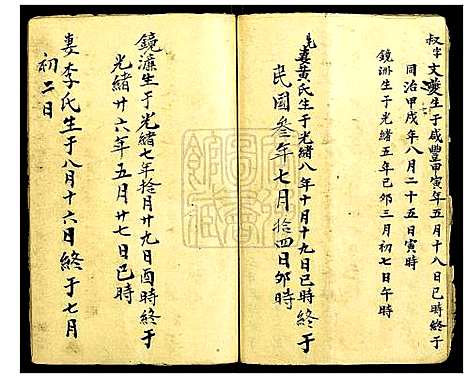 叔字文 生于咸豐甲寅年五月十八日巳時終于
同治甲戌年八月二十五日寅時
鏡洲生于光緒五年己卯三月初七日午時
妻黃氏生于光緒八年十月十九日巳時終于
民國叁年七月拾四日卯時
鏡濂生于光緒七年拾月廿九日酉時終于
光緒廿六年五月廿七日巳時
妻李氏生于八月十六日終于七月
初二日